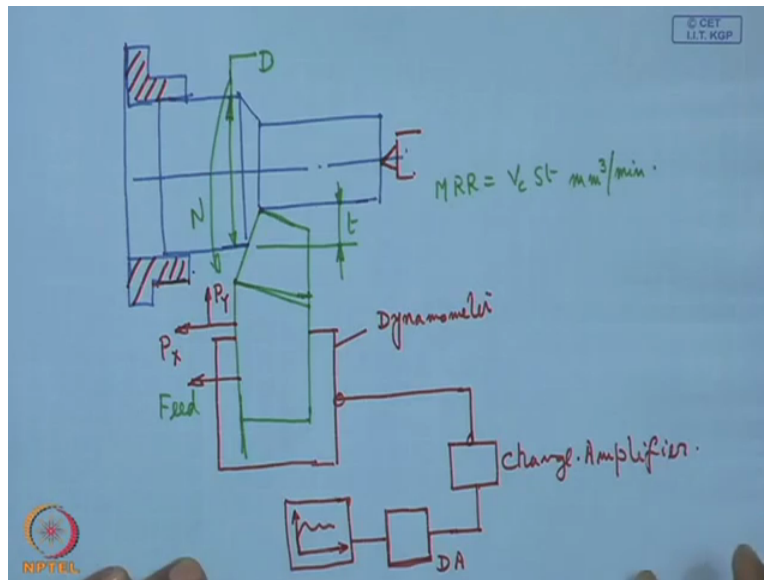 © CET
I.I.T. KGP
D
N
t
MRR = Vc St mm³/min.
Py
Px
Feed
Dynamometer
Change. Amplifier.
DA
NPTEL